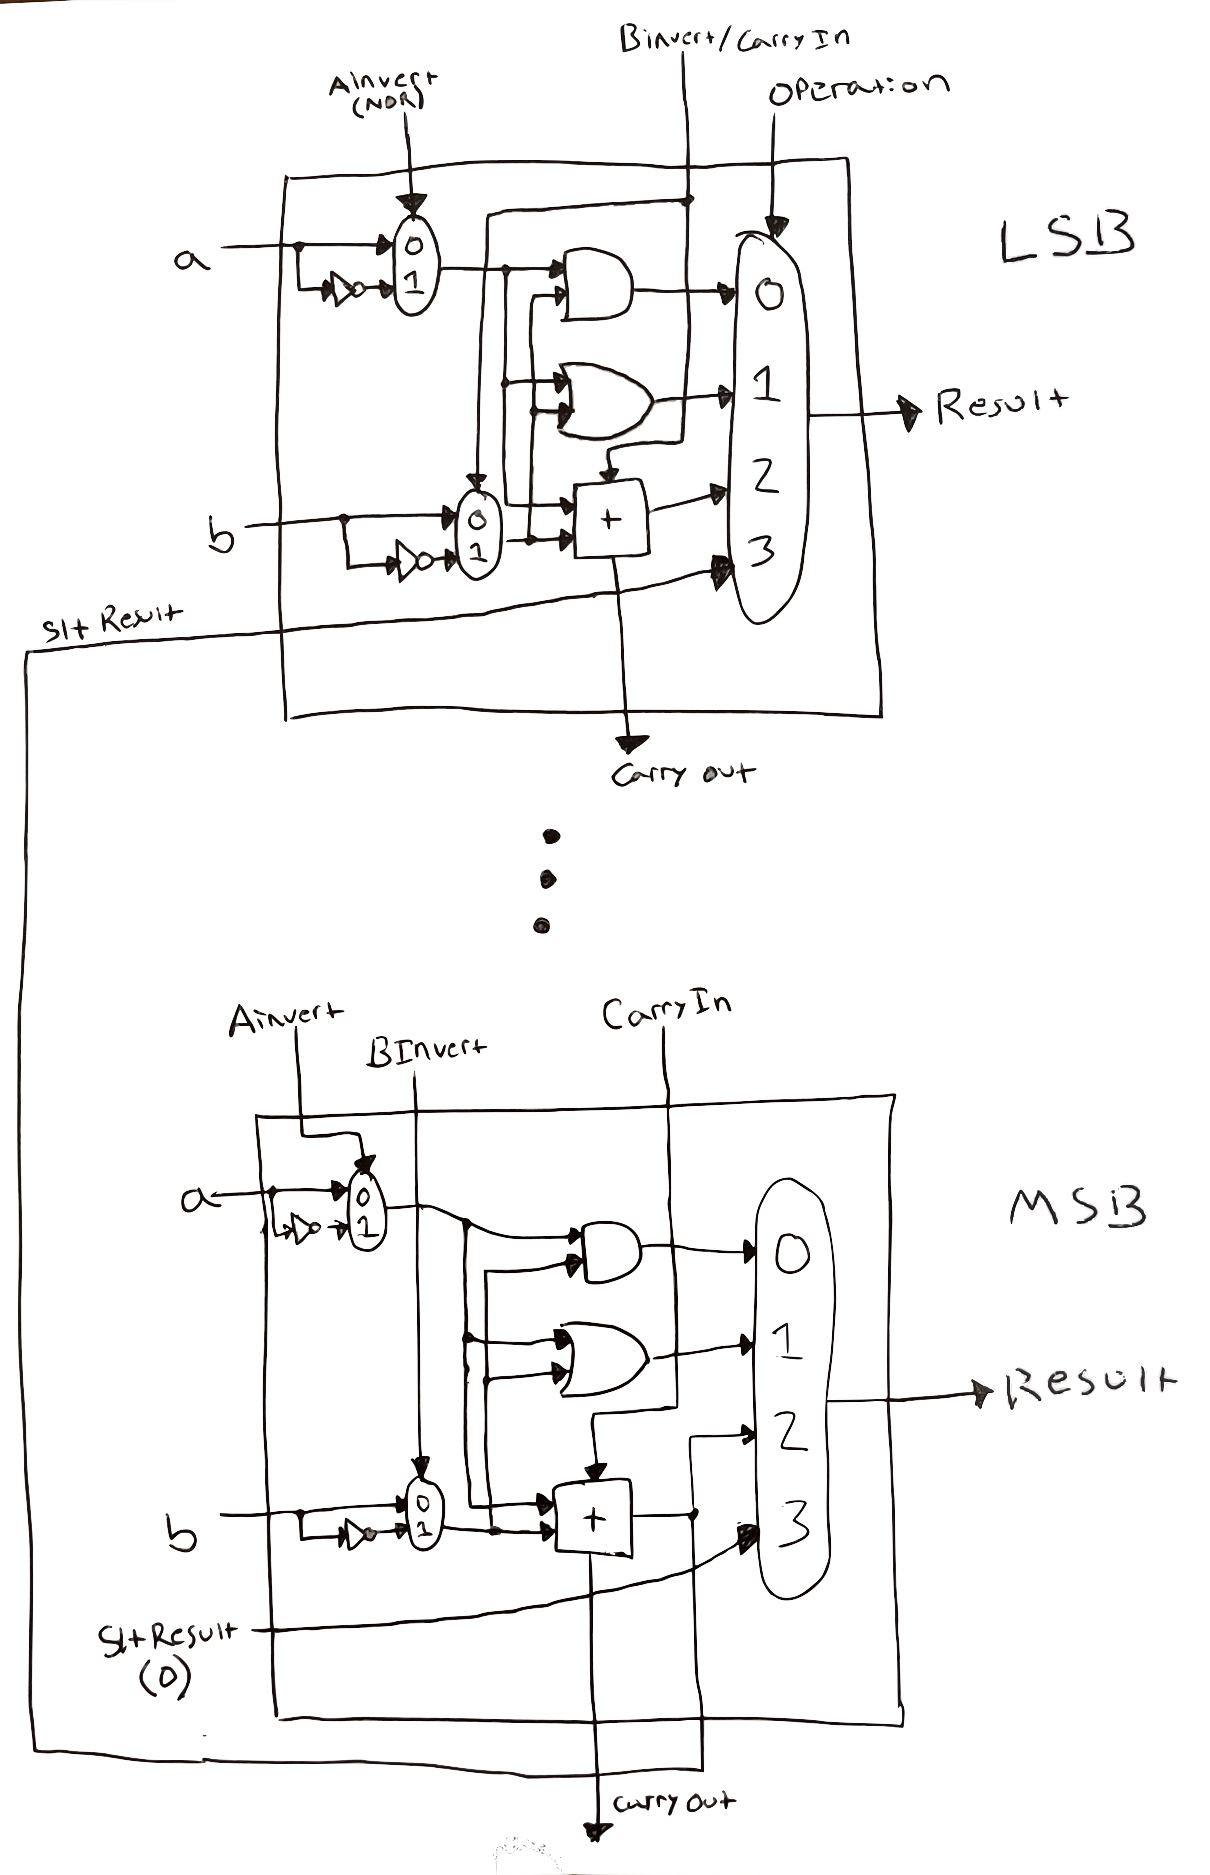 Binvert/Carry In
AInvert
(NOR)
OPEration
LSB
a
0
1
0
1
Result
2
+
3
b
0
1
Slt Result
Carry out
Ainvert
BInvert
Carry In
a
0
1
MSB
0
1
Result
2
b
0
1
+
3
Slt Result
(0)
Carry out